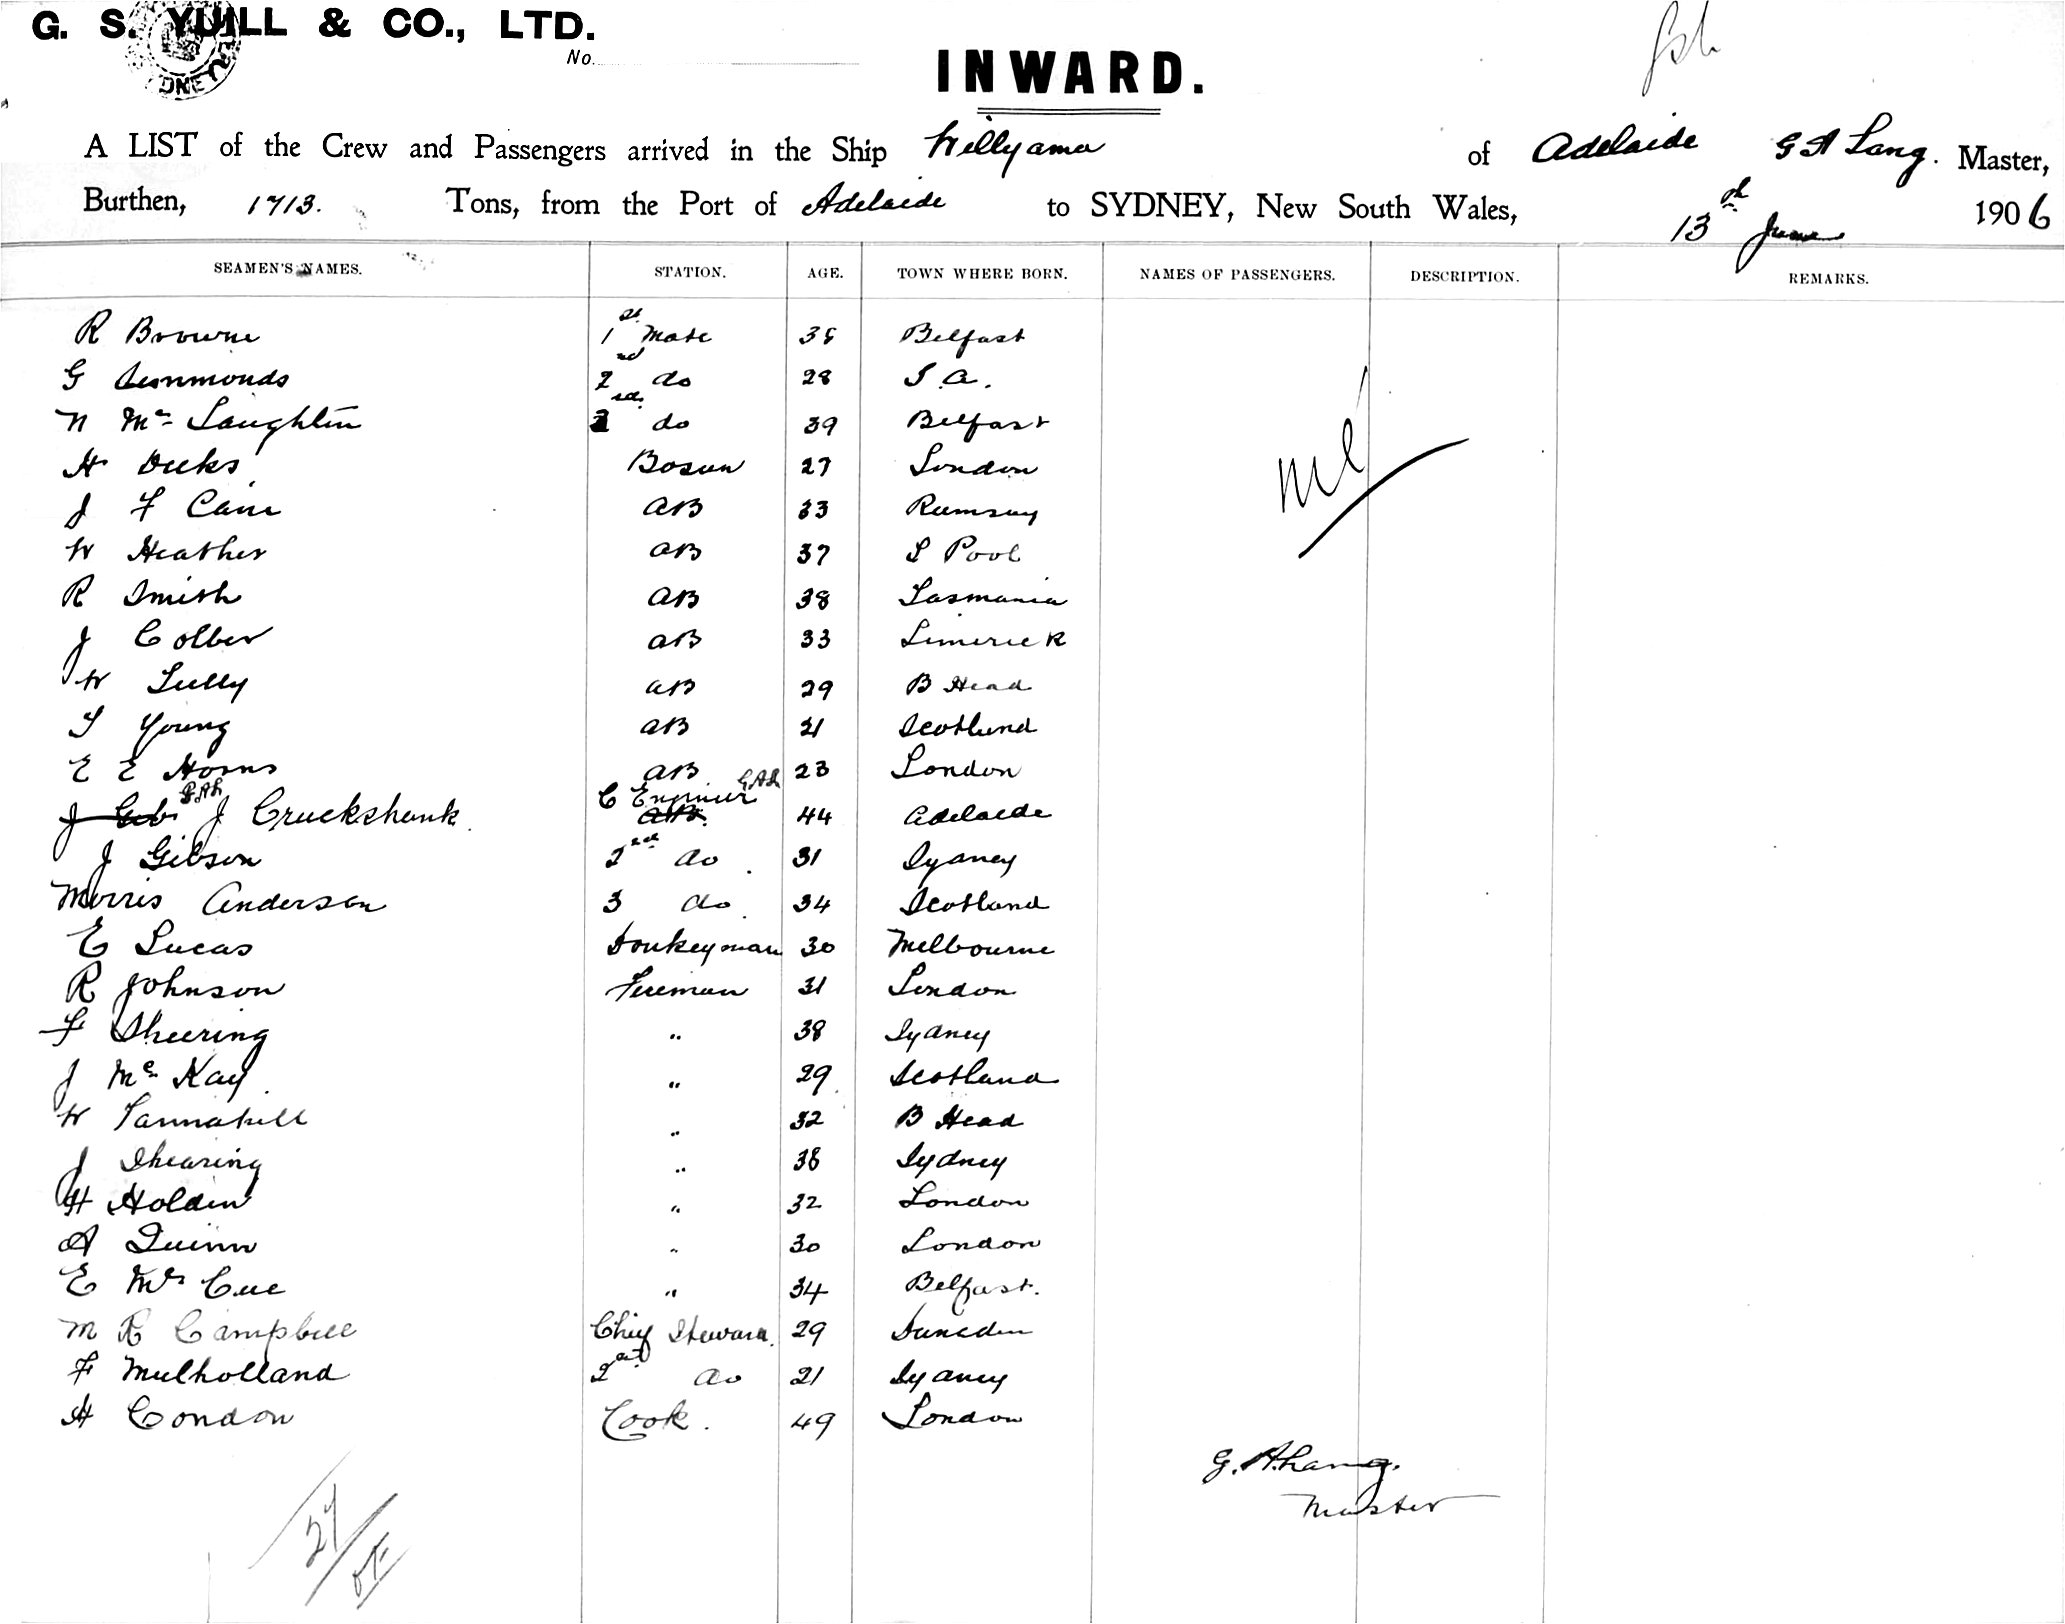 G. S. YUILL & CO., LTD.
No.
INWARD.
A LIST of the Crew and Passengers arrived in the Ship Willyama of Adelaide G A Lang. Master,
Burthen, 1713. Tons, from the Port of Adelaide to SYDNEY, New South Wales, 13th June 1906
SEAMEN'S NAMES. STATION. AGE. TOWN WHERE BORN. NAMES OF PASSENGERS. DESCRIPTION. REMARKS.
R Browne 1st Mate Belfast
G Simmonds 2nd do 28 S.A.
N Mc Laughlin 3rd do 39 Belfast
H Deeks Bosun 27 London
J F Cain AB 33 Ramsay
W Heather AB 37 L Pool
R Smith AB 38 Tasmania
J Colber AB 33 Limerick
W Tully AB 29 B Head
T Young AB 21 Scotland
E E Horns AB 23 London
J Gib GAL J Cruckshank C Engineer GAL AB 44 Adelaide
J Gibson 2nd do 31 Sydney
Morris Anderson 3 do 34 Scotland
E Lucas Donkeyman 30 Melbourne
R Johnson Fireman 31 London
F Sheering " 38 Sydney
J Mc Kay " 29 Scotland
W Tannahill " 32 B Head
J Shearing " 38 Sydney
H Holden " 32 London
A Quinn " 30 London
E Mc Cue " 34 Belfast.
M R Campbell Chief Steward. 29 Dunedin
F Mulholland 2nd do 21 Sydney
H Condon Cook. 49 London
Nil
G. A. Lang.
Master
27